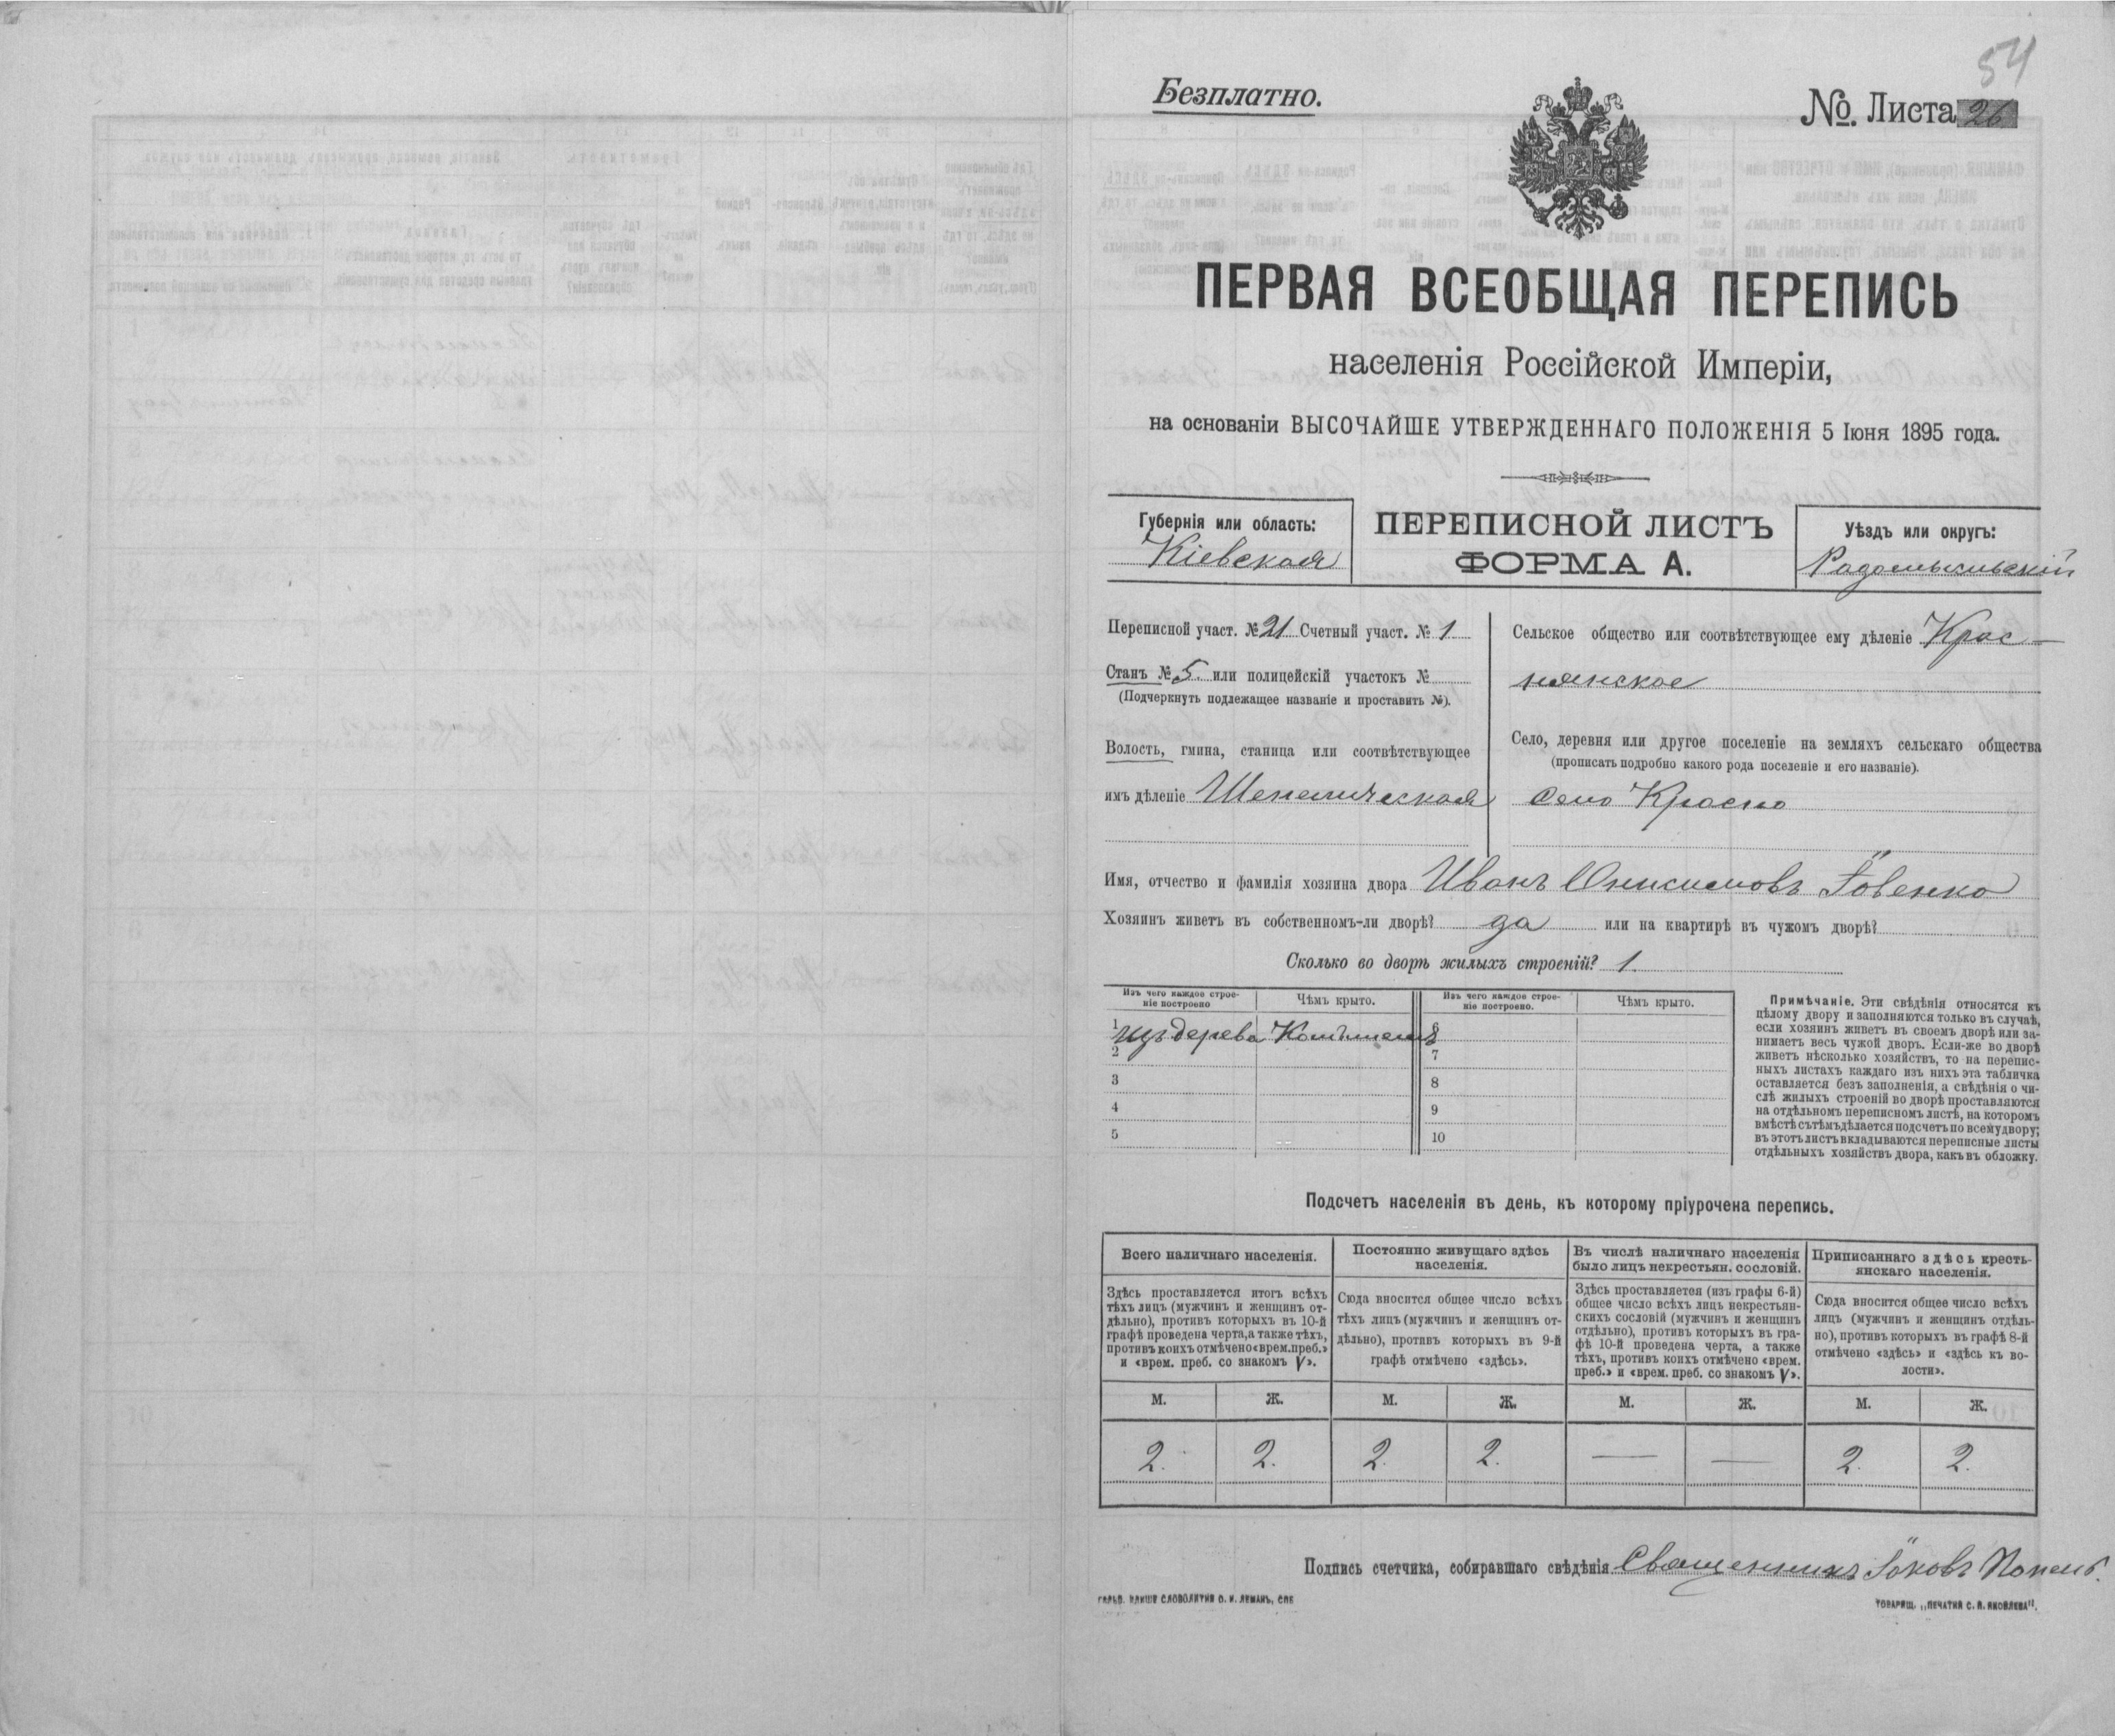 54
Безплатно.
№. Листа 26
ПЕРВАЯ ВСЕОБЩАЯ ПЕРЕПИСЬ
населенія Россійской Имперіи,
на основаніи ВЫСОЧАЙШЕ УТВЕРЖДЕННАГО ПОЛОЖЕНІЯ 5 Іюня 1895 года.
Губернія или область:
Кіевская
ПЕРЕПИСНОЙ ЛИСТЪ
ФОРМА А.
Уѣздъ или округъ:
Радомысльскій
Переписной участ. № 21 Счетный участ. № 1
Станъ № 5. или полицейскій участокъ №
(Подчеркнуть подлежащее названіе и проставить №).
Волость, гмина, станица или соотвѣтствующее
имъ дѣленіе Шепеличская
Сельское общество или соотвѣтствующее ему дѣленіе Крас-
нянское
Село, деревня или другое поселеніе на земляхъ сельскаго общества
(прописать подробно какого рода поселеніе и его названіе).
село Красно
Имя, отчество и фамилія хозяина двора Иванъ Онисимовъ Іовенко
Хозяинъ живетъ въ собственномъ-ли дворѣ? да или на квартирѣ въ чужомъ дворѣ?
Сколько во дворѣ жилыхъ строеній? 1.
Изъ чего каждое строе-
ніе построено
Чѣмъ крыто.
Изъ чего каждое строе-
ніе построено.
Чѣмъ крыто.
1 изъ дерева
6
2
7
3
8
4
9
5
10
Примѣчаніе. Эти свѣдѣнія относятся къ
цѣлому двору и заполняются только въ случаѣ,
если хозяинъ живетъ въ своемъ дворѣ или за-
нимаетъ весь чужой дворъ. Если-же во дворѣ
живетъ нѣсколько хозяйствъ, то на перепис-
ныхъ листахъ каждаго изъ нихъ эта табличка
оставляется безъ заполненія, а свѣдѣнія о чи-
слѣ жилыхъ строеній во дворѣ проставляются
на отдѣльномъ переписномъ листѣ, на которомъ
вмѣстѣ съ тѣмъ дѣлается подсчетъ по всему двору;
въ этотъ листъ вкладываются переписные листы
отдѣльныхъ хозяйствъ двора, какъ въ обложку.
Подсчетъ населенія въ день, къ которому пріурочена перепись.
Всего наличнаго населенія.
Здѣсь проставляется итогъ всѣхъ
тѣхъ лицъ (мужчинъ и женщинъ от-
дѣльно), противъ которыхъ въ 10-й
графѣ проведена черта, а также тѣхъ,
противъ коихъ отмѣчено «врем. преб.»
и «врем. преб. со знакомъ V».
Постоянно живущаго здѣсь
населенія.
Сюда вносится общее число всѣхъ
тѣхъ лицъ (мужчинъ и женщинъ от-
дѣльно), противъ которыхъ въ 9-й
графѣ отмѣчено «здѣсь».
Въ числѣ наличнаго населенія
было лицъ некрестьян. сословій.
Здѣсь проставляется (изъ графы 6-й)
общее число всѣхъ лицъ некрестьян-
скихъ сословій (мужчинъ и женщинъ
отдѣльно), противъ которыхъ въ гра-
фѣ 10-й проведена черта, а также
тѣхъ, противъ коихъ отмѣчено «врем.
преб.» и «врем. преб. со знакомъ V».
Приписаннаго здѣсь кресть-
янскаго населенія.
Сюда вносится общее число всѣхъ
лицъ (мужчинъ и женщинъ отдѣль-
но), противъ которыхъ въ графѣ 8-й
отмѣчено «здѣсь» и «здѣсь къ во-
лости».
М. Ж. М. Ж. М. Ж. М. Ж.
2. 2. 2. 2. — — 2. 2.
Подпись счетчика, собиравшаго свѣдѣнія Священникъ Іаковъ
ГАЛЬВ. КЛИШЕ СЛОВОЛИТНИ О. И. ЛЕМАНЪ, СПБ
ТОВАРИЩ. „ПЕЧАТНЯ С. П. ЯКОВЛЕВА".